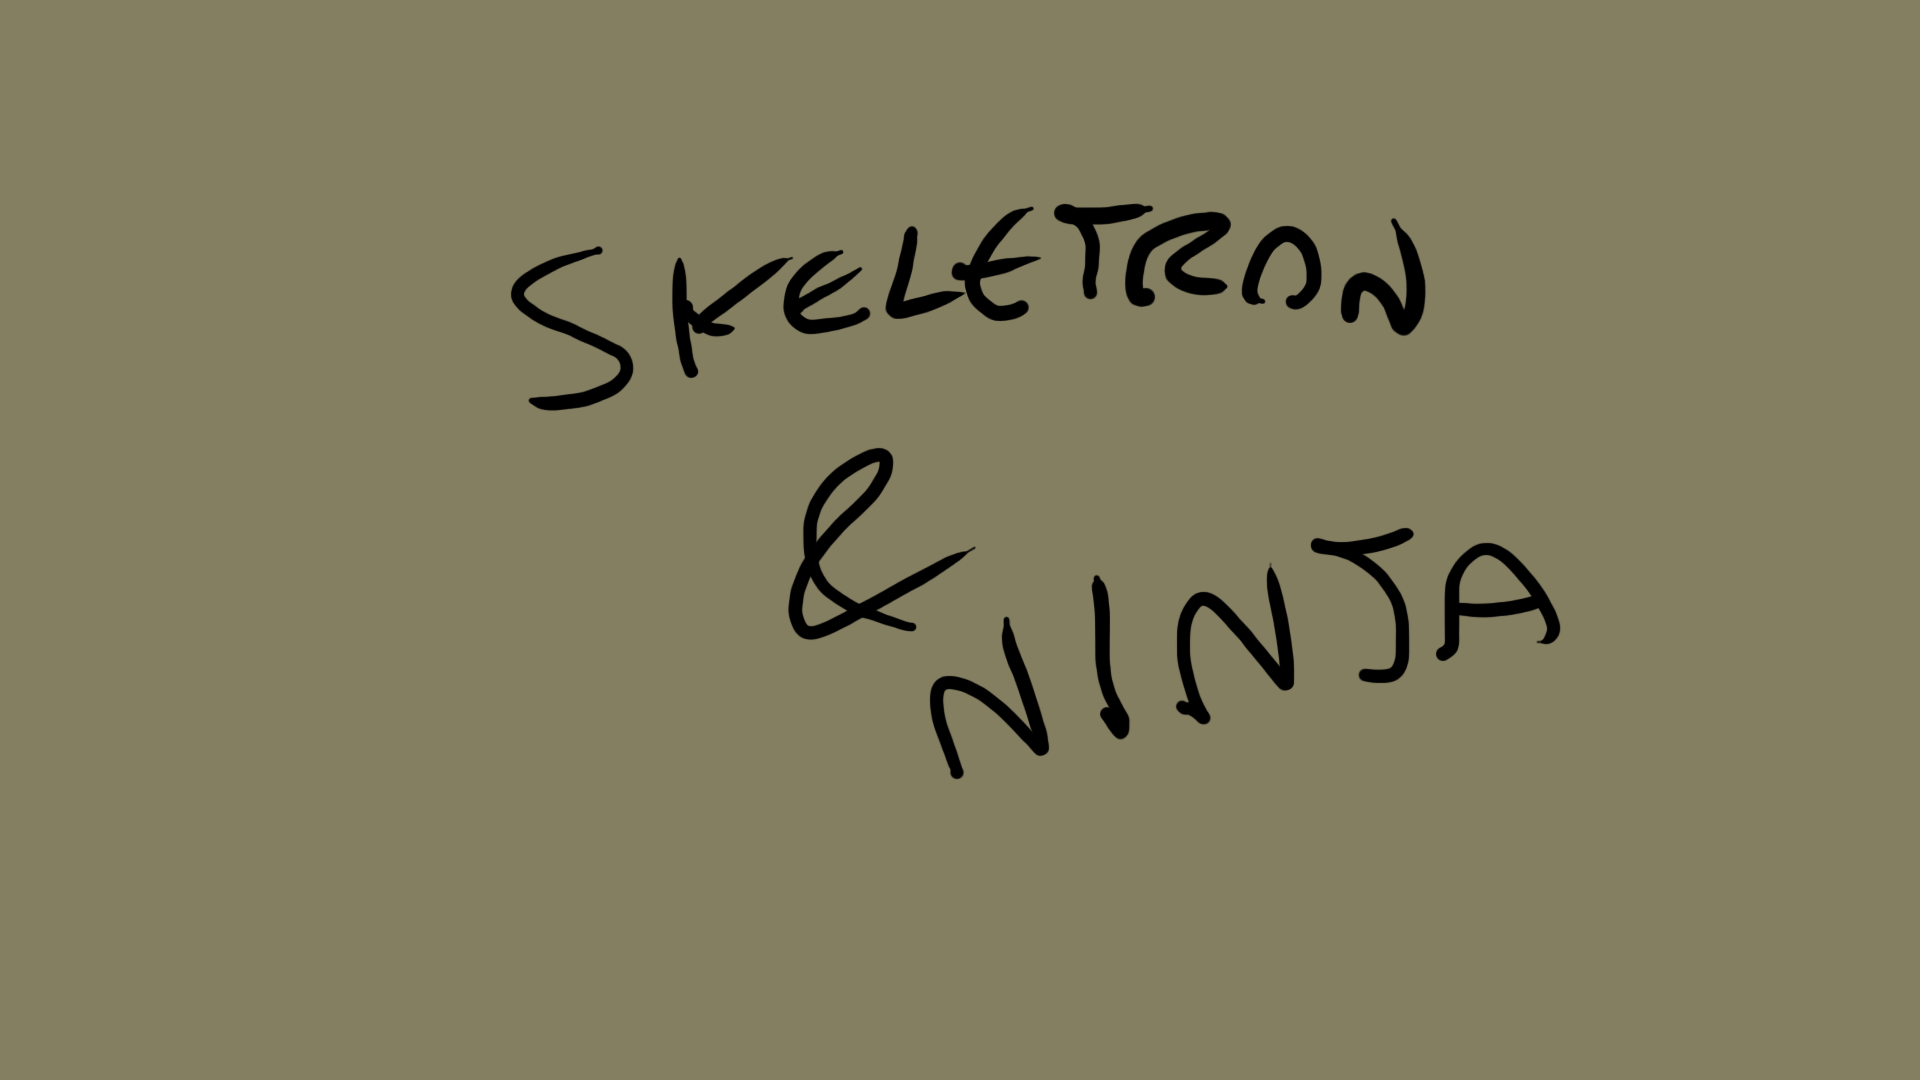 SKELETRON
&
NINJA